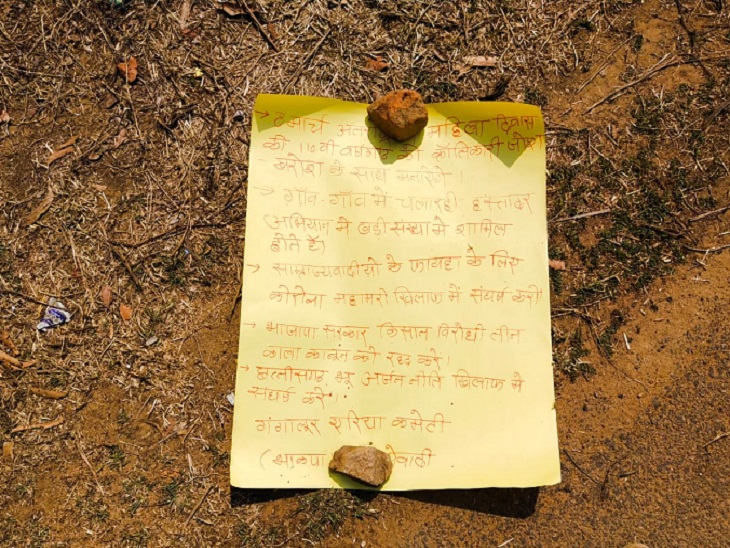 → 8 मार्च महिला दिवस
की को क्रांतिकारी जोश
के साथ मनाएंगे।
→ गॉव-गॉव में चलारही हस्ताक्षर
अभियान में बड़ी संख्या में शामिल
होते हैं।
→ साम्राज्यवादीयो के फायदा के लिए
कोरोना महामारी खिलाफ में संघर्ष करो!
→ भाजापा सरकार किसान विरोधी तीन
काला कानून को रद्द करें।
→ छत्तीसगढ़ भू अर्जन नीति खिलाफ में
संघर्ष करें।
गंगालूर एरिया कमेटी
(भाकपा